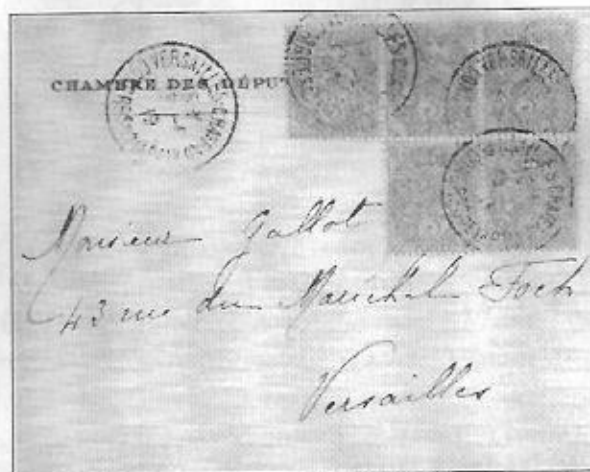 CHAMBRE DES DÉPUT
VERSAILLES
VERSAILLES
Monsieur Gallot
43 rue du Maréchal Foch
Versailles